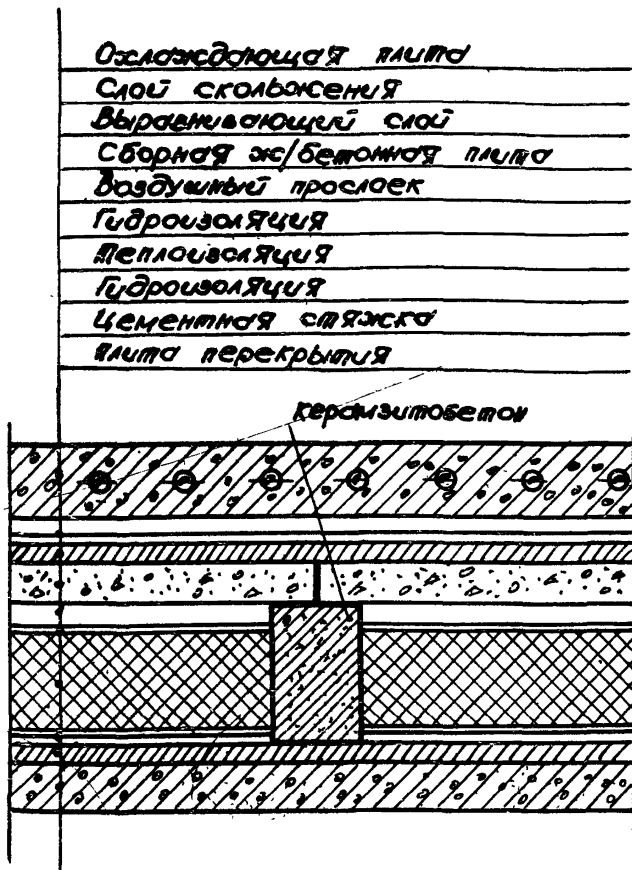 Охлаждающая плита
Слой скольжения
Выравнивающий слой
Сборная ж/бетонная плита
Воздушный прослоек
Гидроизоляция
Теплоизоляция
Гидроизоляция
Цементная стяжка
Плита перекрытия
керамзитобетон